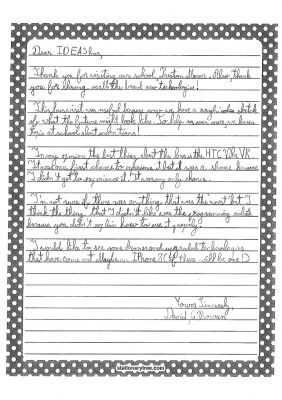 Dear IDEAS bus,
Thank you for visiting our school, Priston Manor. Also, thank
you for showing us all the brand new technologies!
This bus visit was useful because now we have a rough idea
of what the future might look like. To help us even more, we have a
topic at school about inventions!
In my opinion the best thing about the bus was the HTC Vive VR.
It was our first chance to experience it but it was a shame because
I didn't get to experience it. It was my only chance.
I'm not sure if there was anything that was the worst but I
think the thing that I didn't like was the programming robots
because you didn't explain how to use it properly.
I would like to see some drones and upgraded technologies
that have come out. Maybe an IPhone 8 (if there will be one!)
Yours Sincerely,
David
stationarytree.com